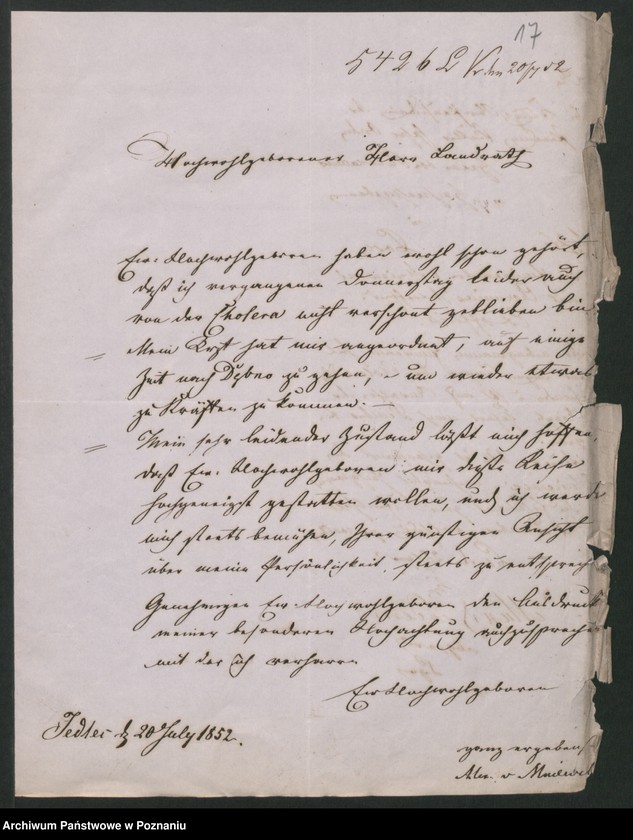 17
5426 L
Hochwohlgeborener Herr Landrath
Ew. Hochwohlgeboren haben wohl schon gehört,
daß ich vergangenen Donnerstag leider auch
von der Cholera nicht verschont geblieben bin.
Mein Arzt hat mir angeordnet, auf einige
Zeit nach Dębno zu gehen, um wieder etwas
zu Kräften zu kommen. —
Mein sehr leidender Zustand läßt mich hoffen,
daß Ew. Hochwohlgeboren mir diese Reise
hochgeneigst gestatten wollen, und ich werde
mich steets bemühen, Ihrer günstigen Ansicht
über meine Persönlichkeit steets zu entsprech
Genehmigen Ew. Hochwohlgeboren den Ausdruck
meiner besonderen Hochachtung
mit der ich verharre
Ew Hochwohlgeboren
Jedlec d 20 July 1852.
ganz ergebenst
Archiwum Państwowe w Poznaniu